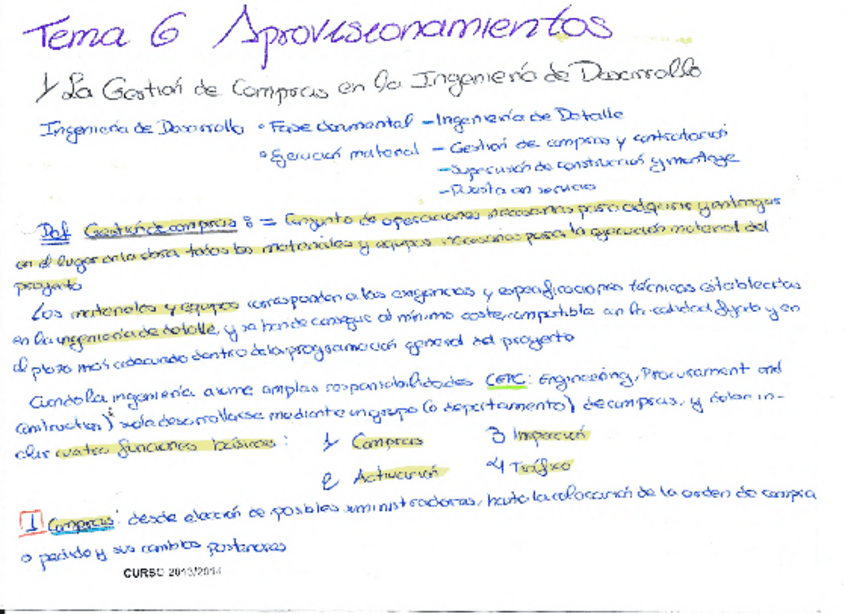 Tema 6 Aprovisionamientos
1 La Gestión de Compras en la Ingeniería de Desarrollo
Ingeniería de Desarrollo • Fase documental - Ingeniería de Detalle
• Ejecución material - Gestión de compras y contratación
- Supervisión de construcción y montaje
- Puesta en servicio
Def Gestión de compras : = Conjunto de operaciones necesarias para adquirir y entregar
en el lugar en la obra todos los materiales y equipos necesarios para la ejecución material del
proyecto
Los materiales y equipos corresponden a las exigencias y especificaciones técnicas establecidas
en la ingeniería de detalle, y se han de conseguir al mínimo coste compatible con la calidad fijada y en
el plazo más adecuado dentro de la programación general del proyecto
Cuando la ingeniería asume amplias responsabilidades (EPC: Engineering, Procurement and
Construction) suele desarrollarse mediante un grupo (o departamento) de compras, y deben in-
cluir cuatro funciones básicas:
1 Compras 3 Inspección
2 Activación 4 Tráfico
1 Compras: desde elección de posibles suministradores, hasta la colocación de la orden de compra
o pedido y sus cambios posteriores
CURSO 2013/2014